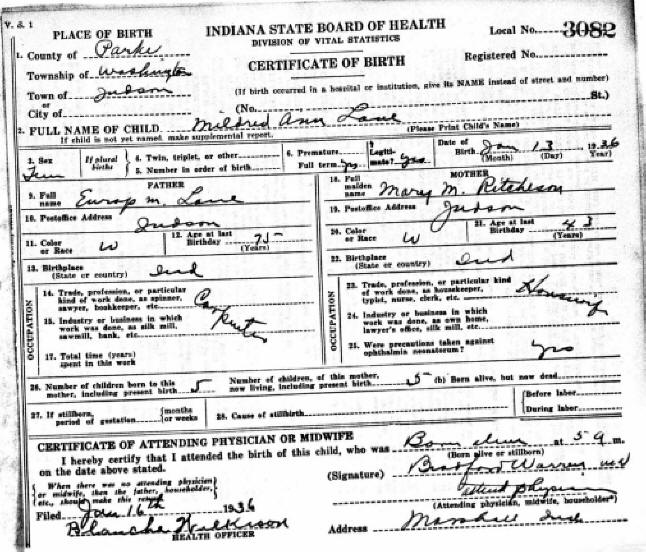 V. S. 1
PLACE OF BIRTH
INDIANA STATE BOARD OF HEALTH
DIVISION OF VITAL STATISTICS
CERTIFICATE OF BIRTH
Local No. 3082
Registered No.
1. County of Parke
Township of Washington
Town of Judson
or
City of
(If birth occurred in a hospital or institution, give its NAME instead of street and number)
(No. St.)
2. FULL NAME OF CHILD Mildred Ann Lane
If child is not yet named, make supplemental report. (Please Print Child's Name)
3. Sex Fem
If plural births
4. Twin, triplet, or other
5. Number in order of birth
6. Premature
Full term yes
7 Legitimate? yes
Date of Birth Jan 13 1936
(Month) (Day) Year)
FATHER
9. Full name M. Lane
10. Postoffice Address Judson
11. Color or Race W
12. Age at last Birthday 75
(Years)
13. Birthplace Ind
(State or country)
OCCUPATION
14. Trade, profession, or particular kind of work done, as spinner, sawyer, bookkeeper, etc. Carpenter
15. Industry or business in which work was done, as silk mill, sawmill, bank, etc.
17. Total time (years) spent in this work
MOTHER
18. Full maiden name Mary M. Ritcheson
19. Postoffice Address Judson
20. Color or Race W
21. Age at last Birthday 43
(Years)
22. Birthplace Ind
(State or country)
OCCUPATION
23. Trade, profession, or particular kind of work done, as housekeeper, typist, nurse, clerk, etc. Housewife
24. Industry or business in which work was done, as own home, lawyer's office, silk mill, etc.
25. Were precautions taken against ophthalmia neonatorum? yes
26. Number of children born to this mother, including present birth 5
Number of children, of this mother, now living, including present birth 5 (b) Born alive, but now dead
27. If stillborn, period of gestation months or weeks
28. Cause of stillbirth
Before labor
During labor
CERTIFICATE OF ATTENDING PHYSICIAN OR MIDWIFE
I hereby certify that I attended the birth of this child, who was Born alive at 5 a m.
on the date above stated. (Born alive or stillborn)
When there was no attending physician or midwife, then the father, householder, etc., should make this return
(Signature) Bradford Warren MD
physician
(Attending physician, midwife, householder)
Filed Jan 16th 1936
Blanche Wilkison
HEALTH OFFICER
Address Marshall Ind